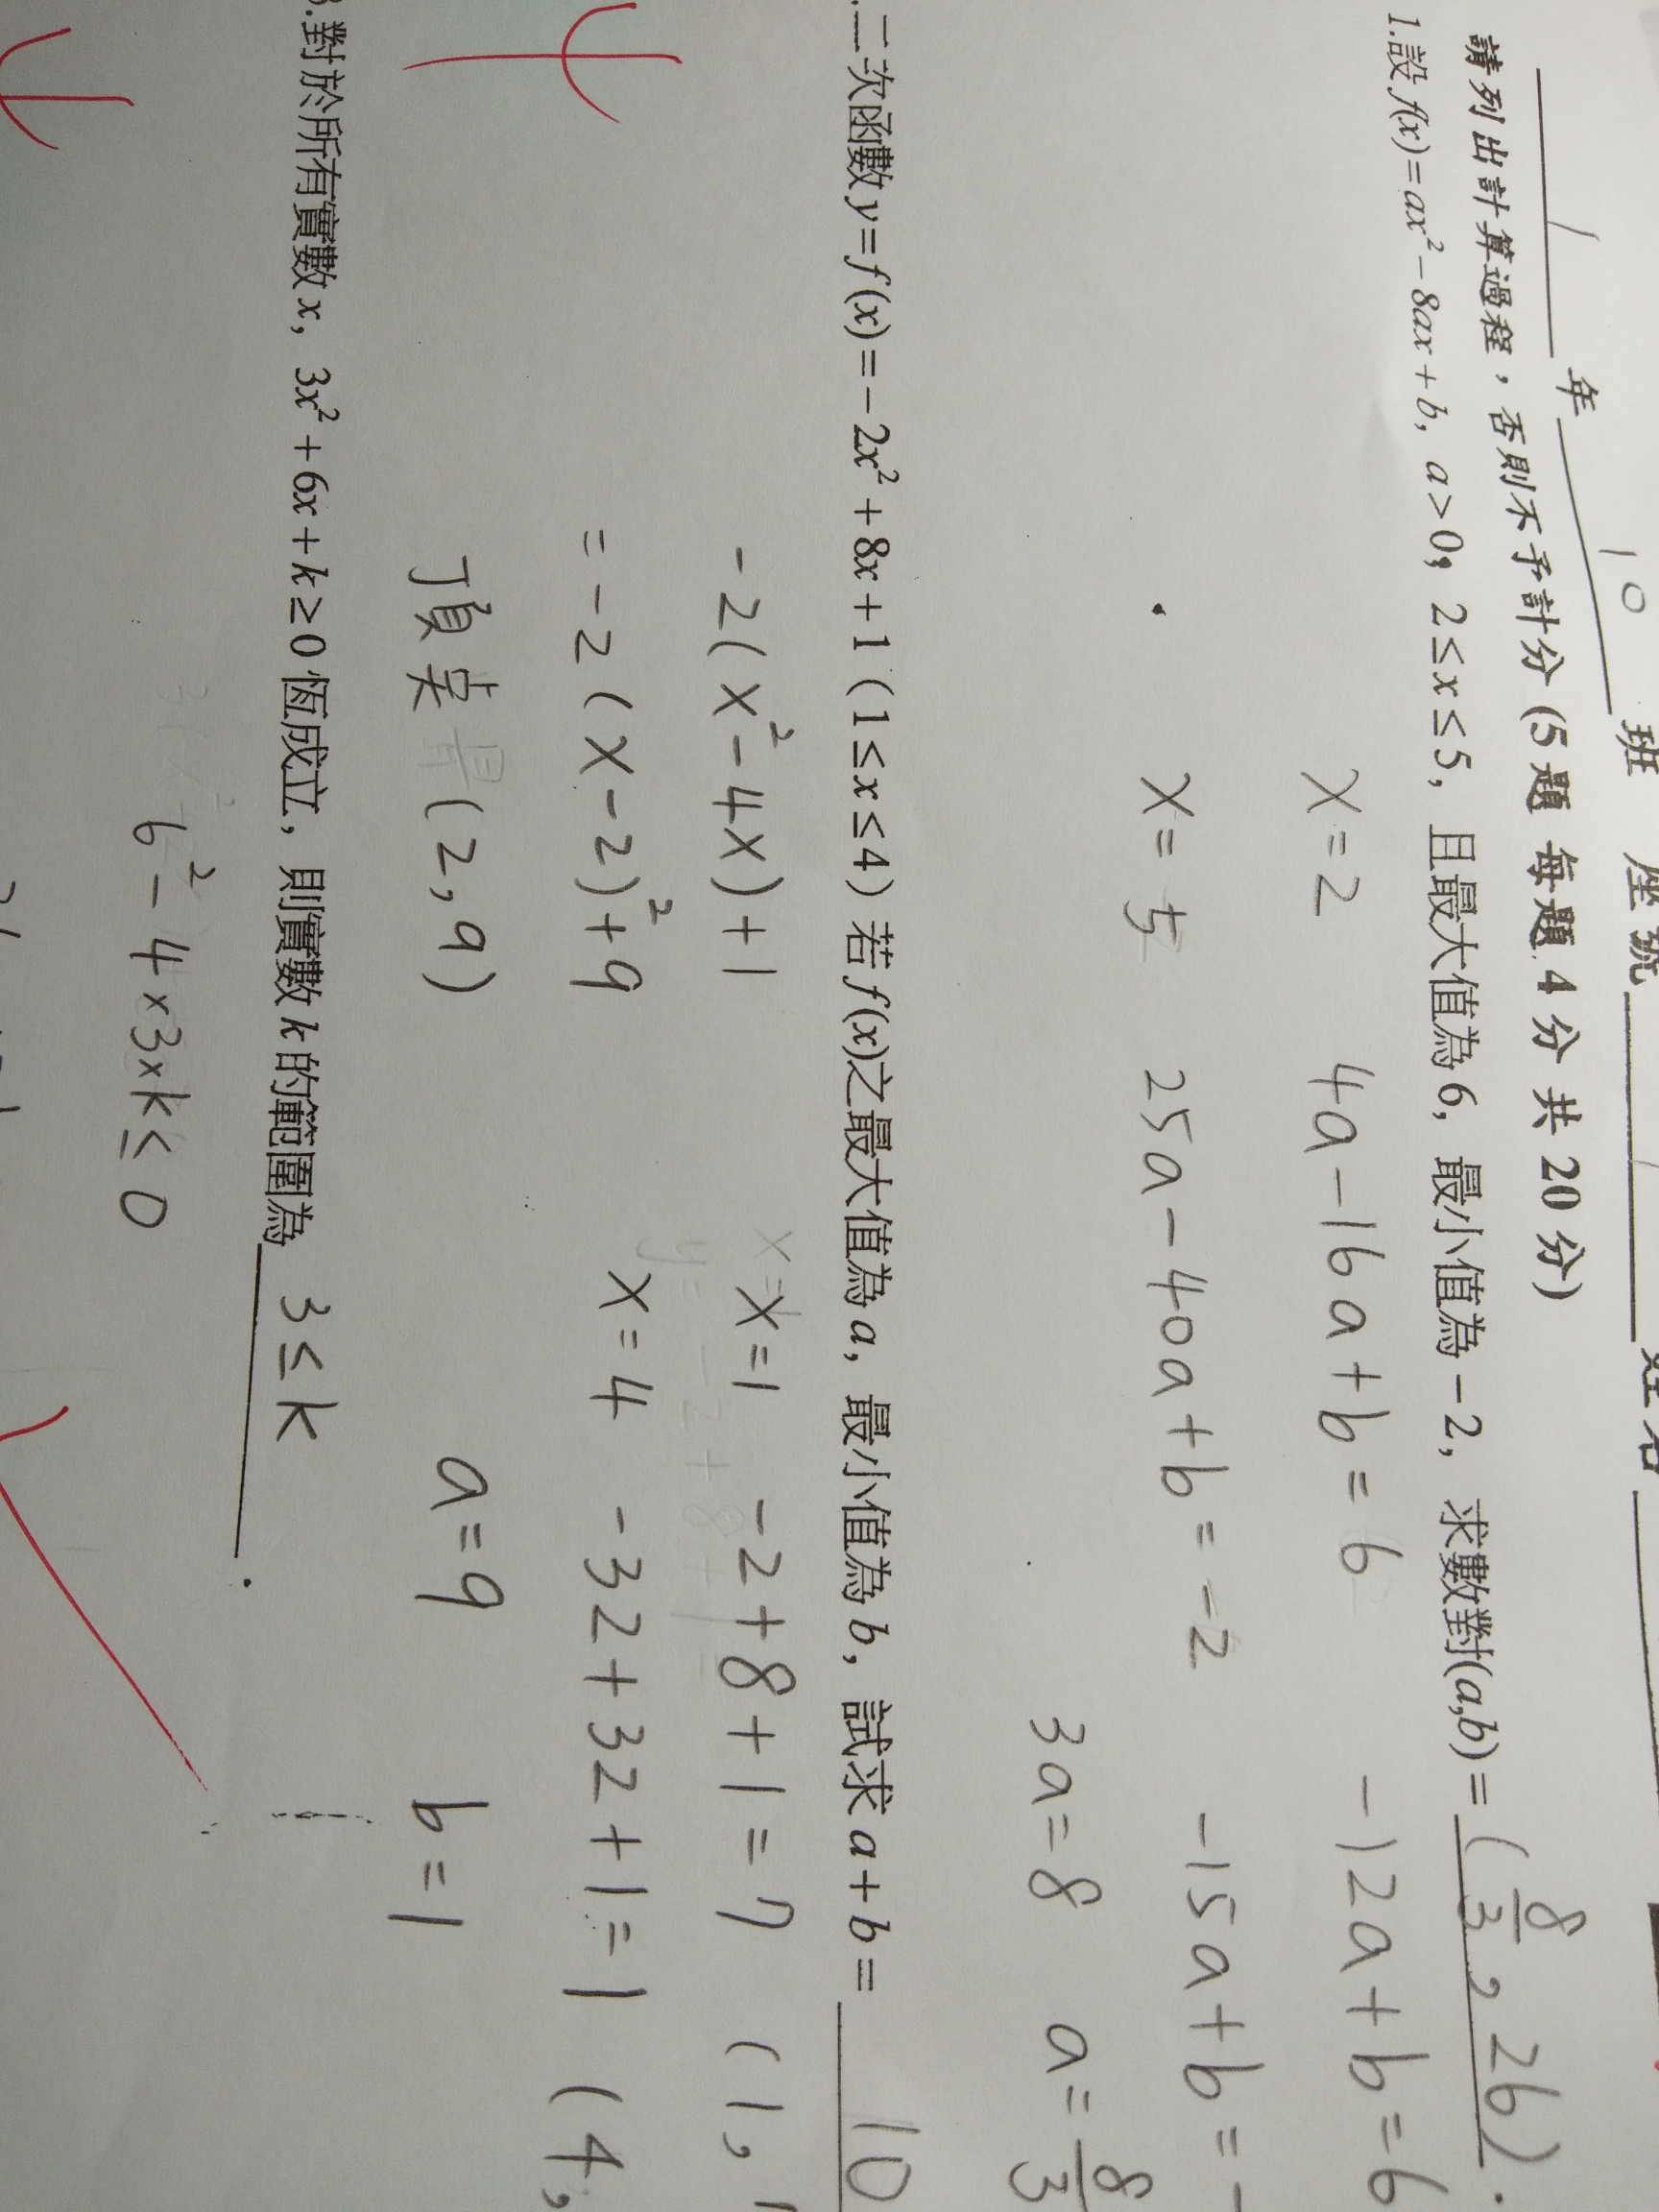 1 年 10 班 座號 姓名
請列出計算過程，否則不予計分 (5 題 每題 4 分 共 20 分)
1.設 f(x)=ax²−8ax+b, a>0, 2≤x≤5, 且最大值為 6, 最小值為 −2, 求數對(a,b)= (8/3, 26).
x=2 4a−16a+b=6 −12a+b=6
x=5 25a−40a+b=−2 −15a+b=−
3a=8 a=8/3
.二次函數 y=f(x)=−2x²+8x+1 (1≤x≤4) 若 f(x)之最大值為 a, 最小值為 b, 試求 a+b= 10
−2(x²−4x)+1 x=1 −2+8+1=7 (1,
=−2(x−2)²+9 x=4 −32+32+1=1 (4,
頂點(2,9) a=9 b=1
3.對於所有實數 x, 3x²+6x+k≥0 恆成立, 則實數 k 的範圍為 3≤k .
6²−4×3×k≤0